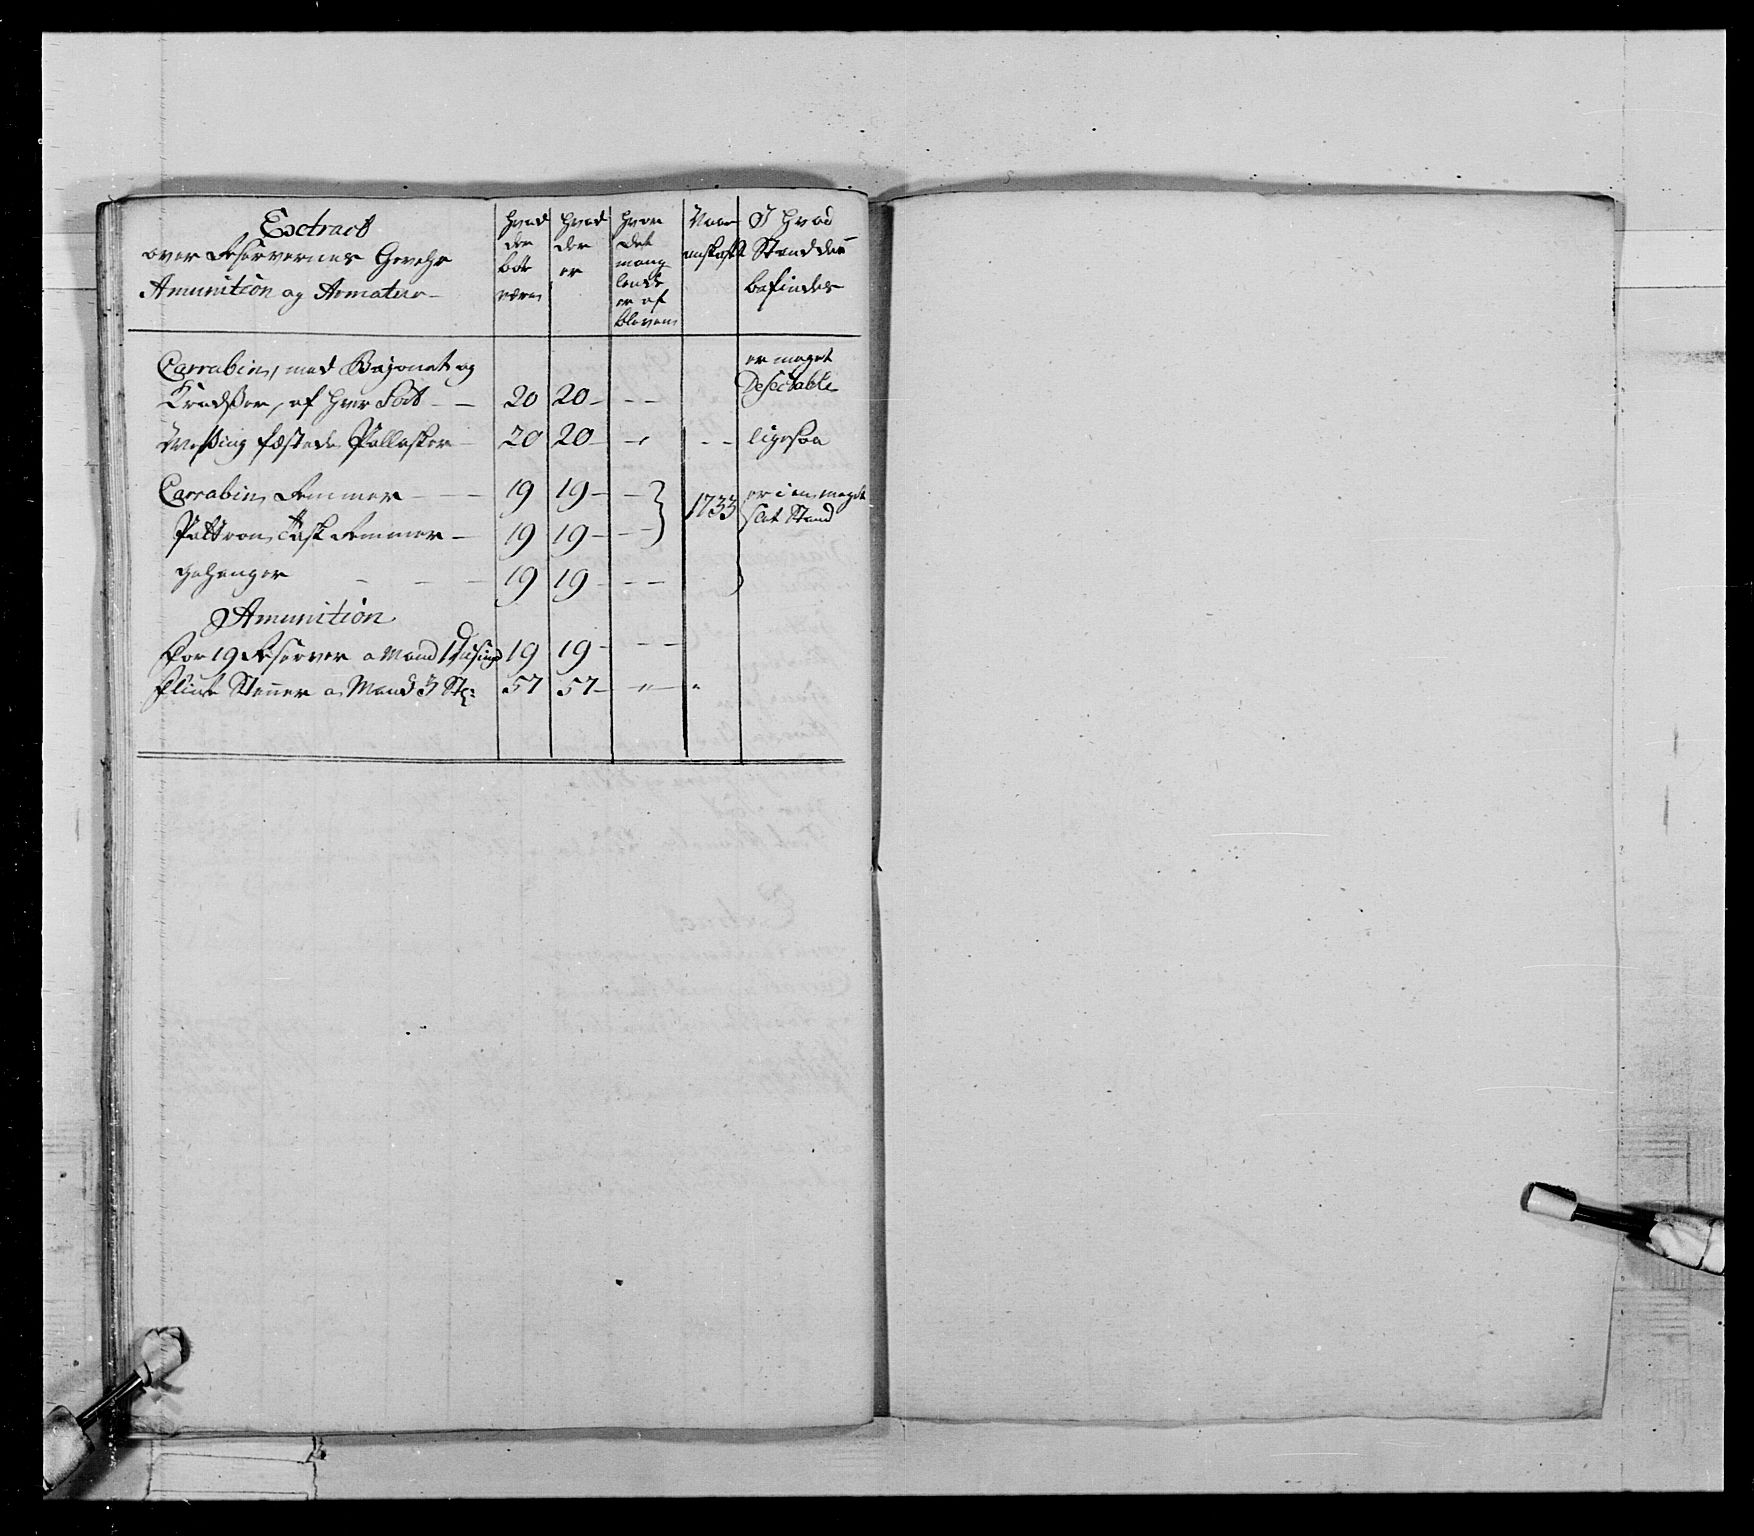 Extract
over Reservernes Gevehr
Amunition og Armatur
hvad der bör være
hvad der er
hvor det mang lende er af bleven
Naar anskaft
I hvad Stand det befindes
Carrabin, med Bajonet og
Kradsser, af hver Sort 20 20 er meget Defectable
Messing fæstede Pallasker 20 20 ligesaa
Carrabin Remmer 19 19 1733 er i en meget slet Stand
Pattron Task Remmer 19 19
gehenger 19 19
Amunition
For 19 Reserver a Mand 1 19 19
Flint Stenner a Mand 3 St: 57 57